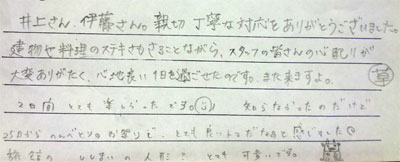 井上さん、伊藤さん。親切丁寧な対応をありがとうございました。
建物や料理のステキさもさることながら、スタッフの皆さんの心配りが
大変ありがたく、心地良い1日を過ごせたのです。また来ますよ。
草
2日間 とても 楽しかったです。 知らなかったのだけど
25日から のんべえ の祭りで、とても良い だなぁと感じました
旅館の いの人形? とても可愛いです。